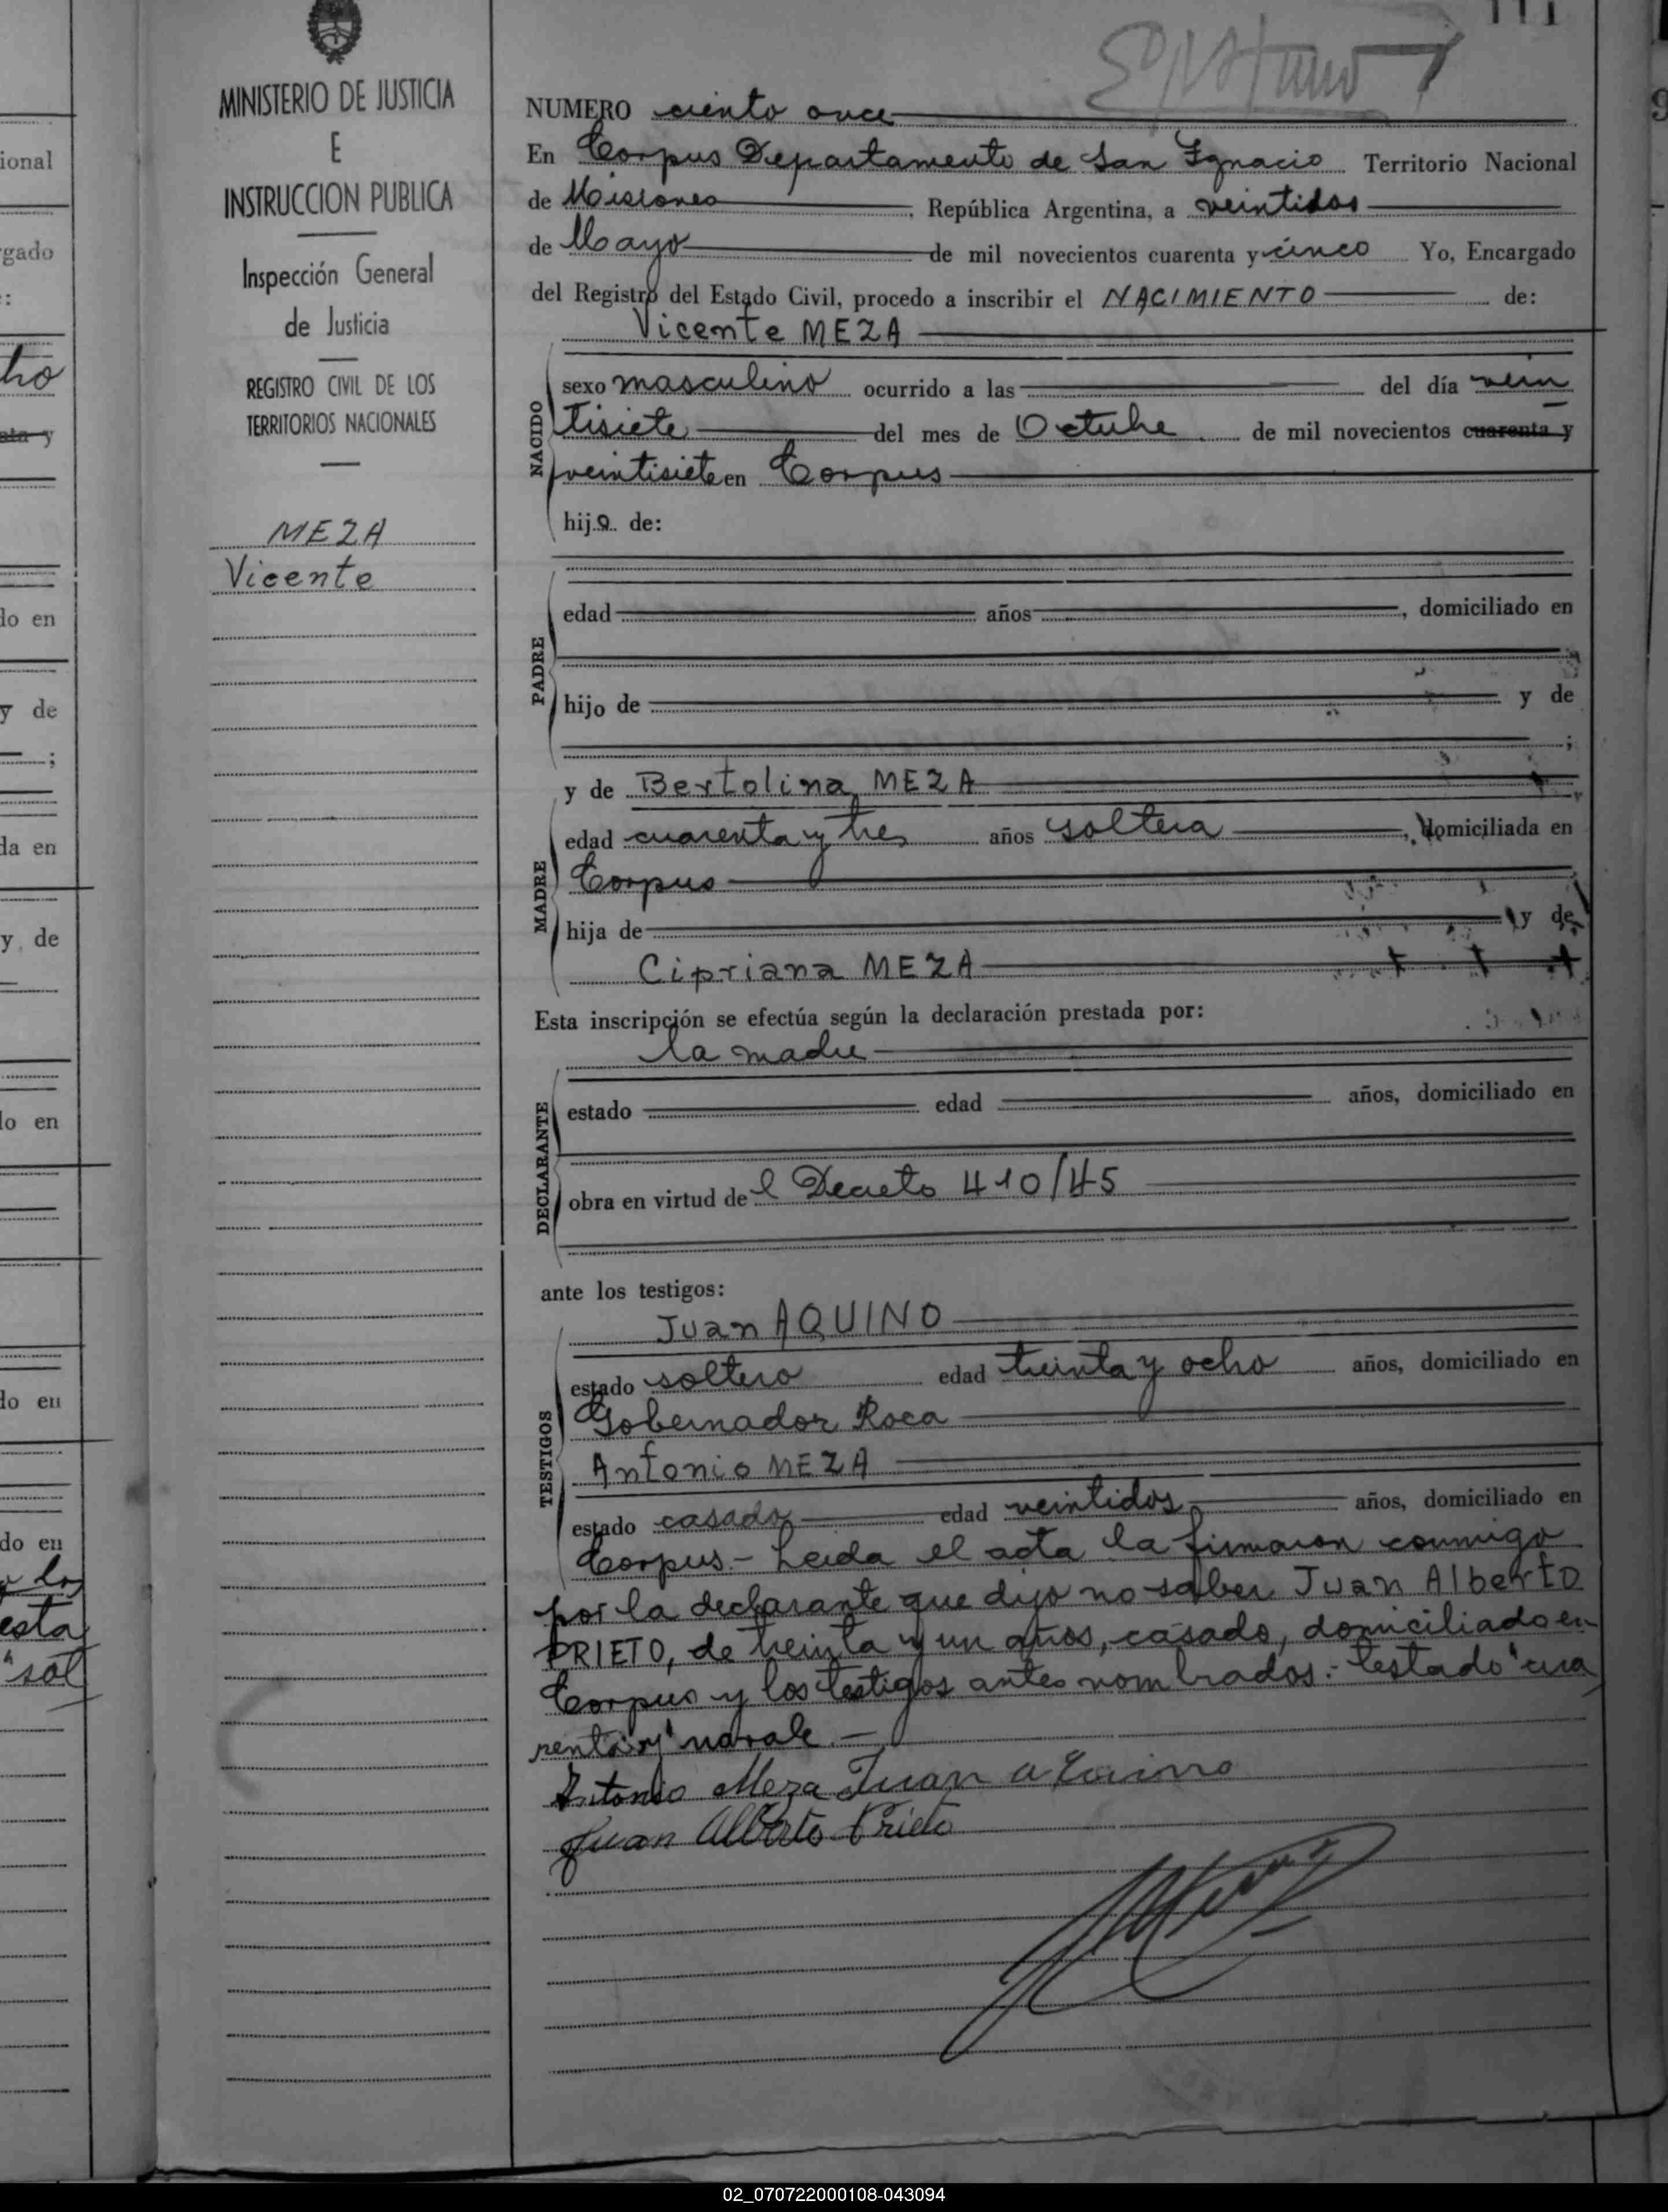 111
MINISTERIO DE JUSTICIA
E
INSTRUCCION PUBLICA
Inspección General
de Justicia
REGISTRO CIVIL DE LOS
TERRITORIOS NACIONALES
MEZA
Vicente
NUMERO ciento once
En Corpus Departamento de San Ignacio Territorio Nacional
de Misiones, República Argentina, a veintidos
de Mayo de mil novecientos cuarenta y cinco Yo, Encargado
del Registro del Estado Civil, procedo a inscribir el NACIMIENTO de:
Vicente MEZA
NACIDO
sexo masculino ocurrido a las del día vein
tisiete del mes de Octubre de mil novecientos cuarenta y
veintisiete en Corpus
hijo de:
PADRE
edad años, domiciliado en
hijo de y de
;
MADRE
y de Bertolina MEZA
edad cuarenta y tres años soltera, domiciliada en
Corpus
hija de y de
Cipriana MEZA
Esta inscripción se efectúa según la declaración prestada por:
la madre
DECLARANTE
estado edad años, domiciliado en
obra en virtud del Decreto 410/45
ante los testigos:
TESTIGOS
Juan AQUINO
estado soltero edad treinta y ocho años, domiciliado en
Gobernador Roca
Antonio MEZA
estado casado edad veintidos años, domiciliado en
Corpus.- Leida el acta la firmaron conmigo
por la declarante que dijo no saber Juan Alberto
PRIETO, de treinta y un años, casado, domiciliado en
Corpus y los testigos antes nombrados.- testado "cua
renta y" no vale.-
Antonio Meza Juan Aquino
Juan Alberto Prieto
02_070722000108-043094